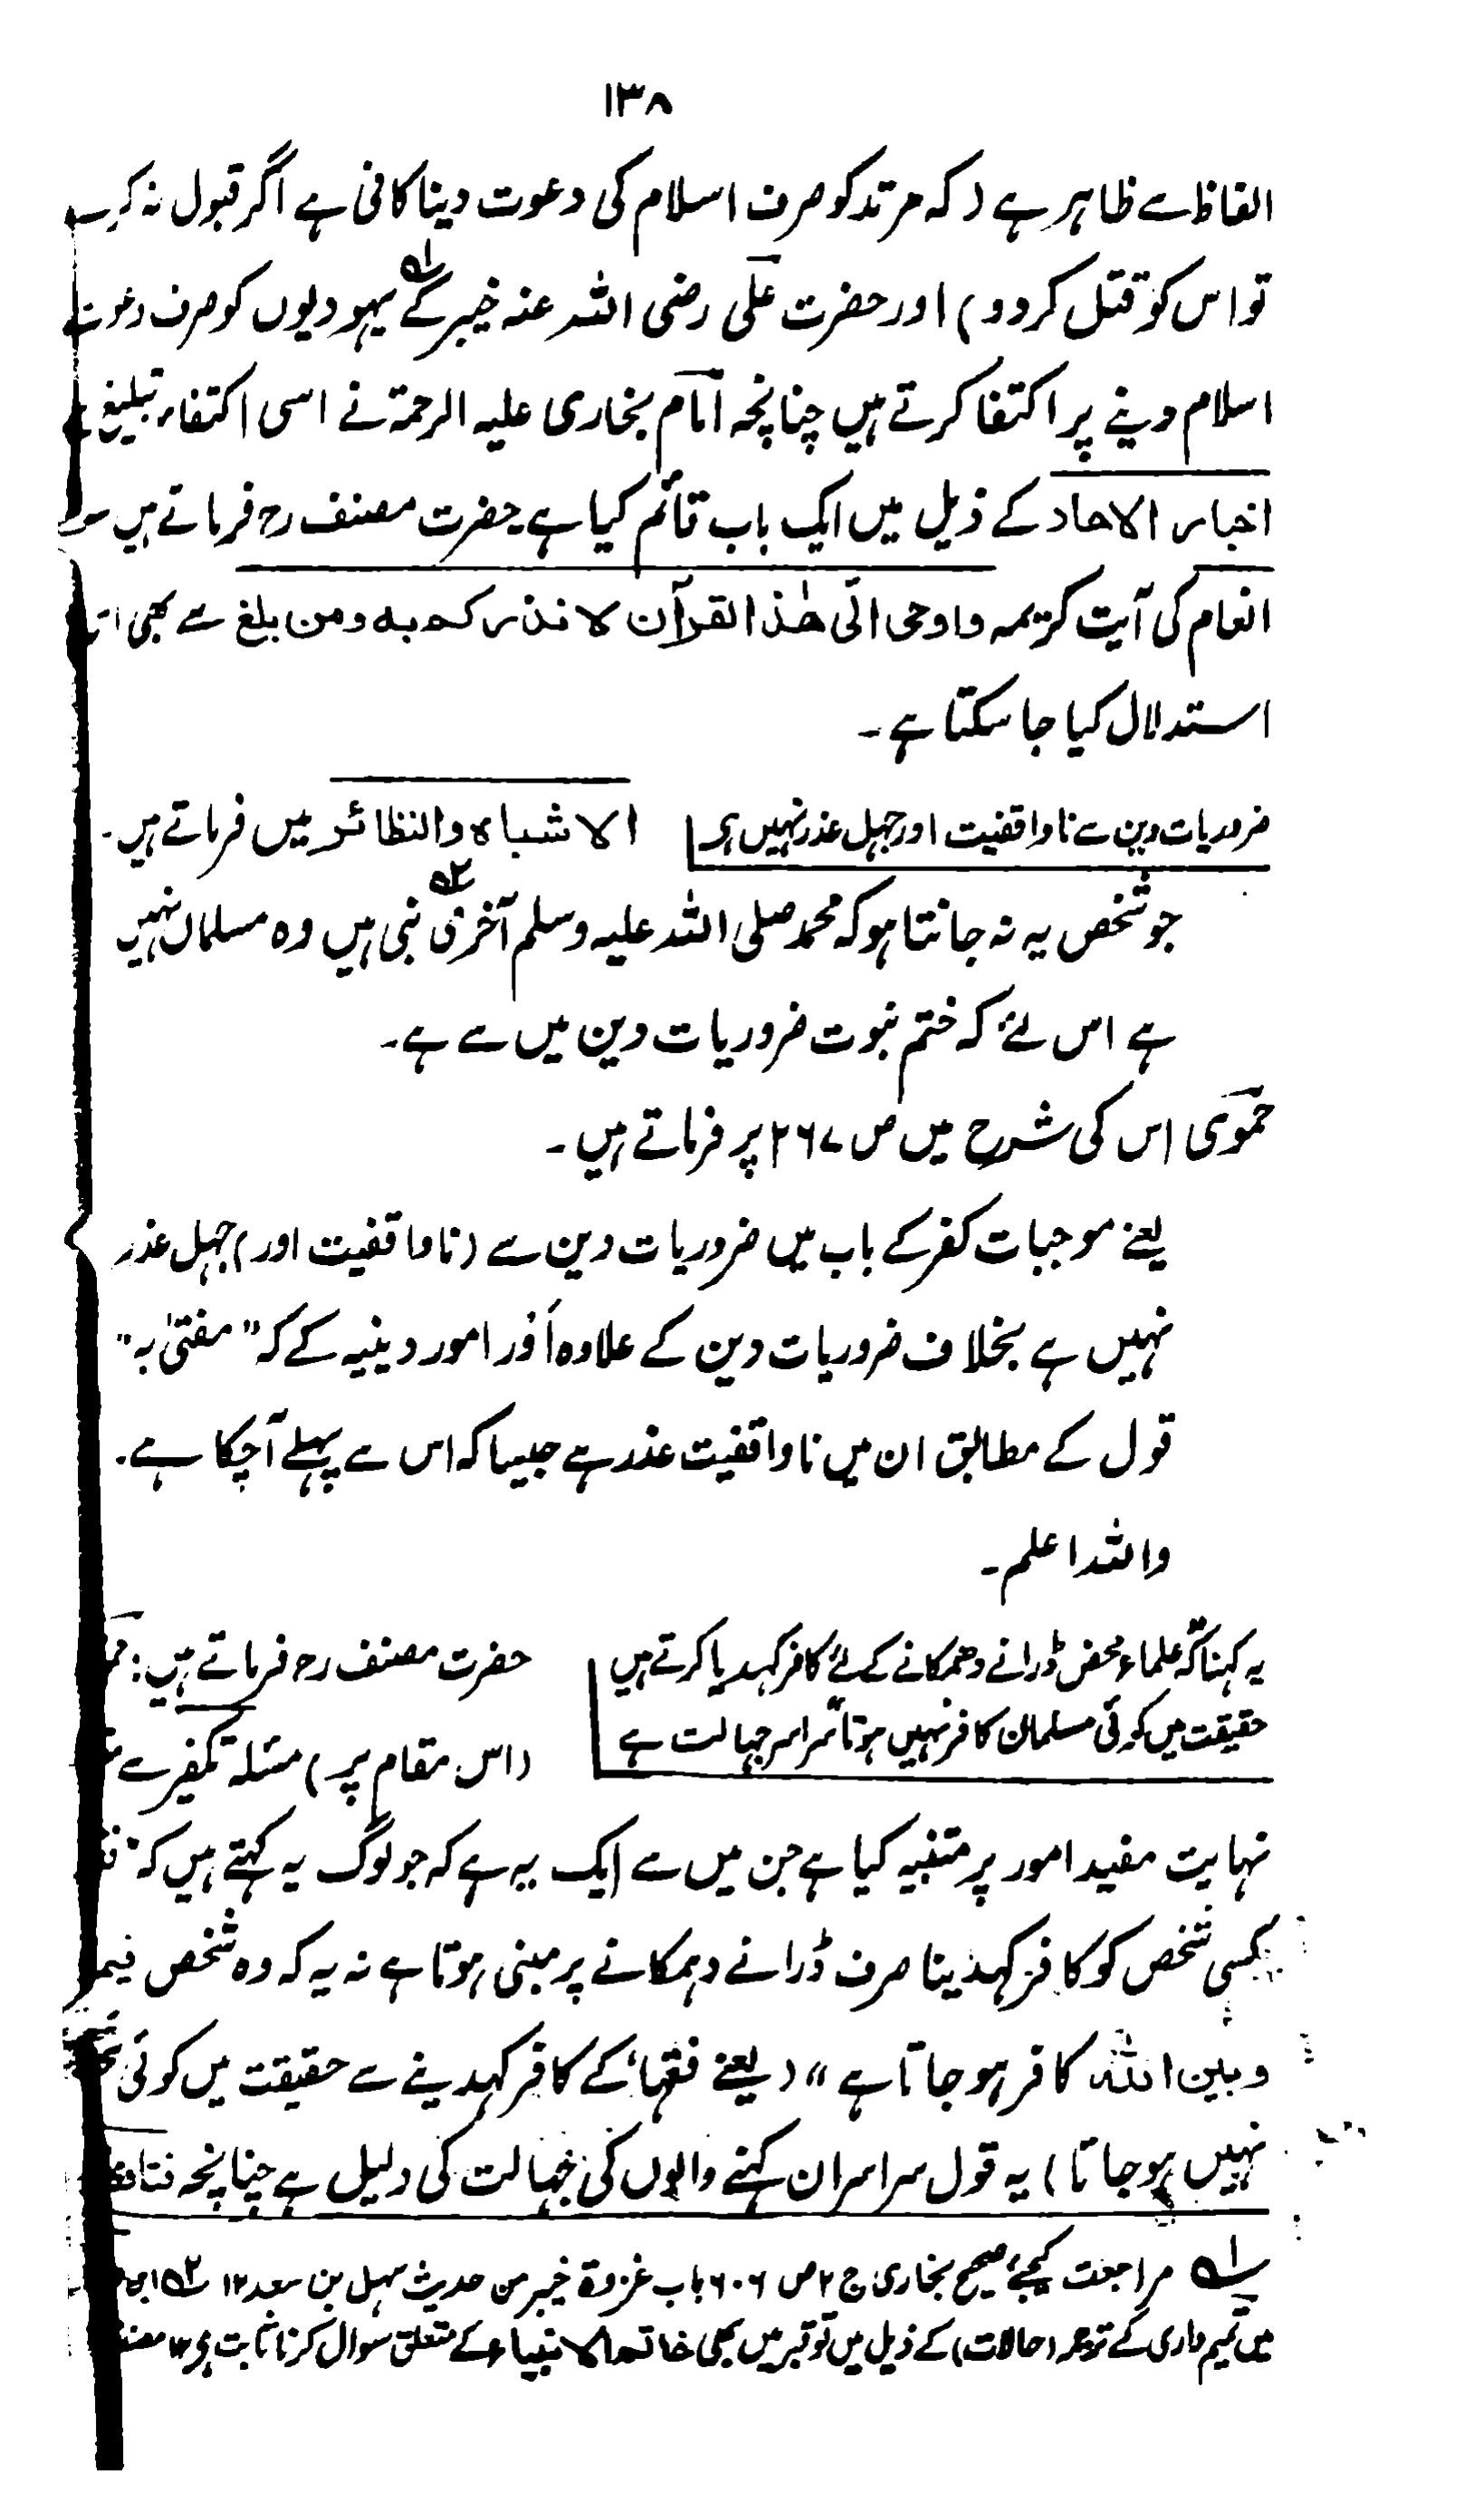 ۱۳۸
الفاظ سے ظاہر ہے (کہ مرتد کو صرف اسلام کی دعوت دینا کافی ہے اگر قبول نہ کرے
تو اس کو قتل کر دو) اور حضرت علی رضی اللہ عنہ خیبر کے۱ یہودیوں کو صرف دعوت
اسلام دینے پر اکتفا کرتے ہیں چنانچہ امام بخاری علیہ الرحمۃ نے اسی اکتفاء تبلیغ
اخبار الاحاد کے ذیل میں ایک باب قائم کیا ہے حضرت مصنف رح فرماتے ہیں
انعام کی آیت کریمہ واوحی الی ھٰذا القرآن لانذرکم بہ ومن بلغ سے بھی
استدلال کیا جا سکتا ہے۔
ضروریات دین سے ناواقفیت اور جہل عذر نہیں ہی
الاشباہ والنظائر میں فرماتے ہیں۔
جو شخص یہ نہ جانتا ہو کہ محمد صلی اللہ علیہ وسلم آخری۲ نبی ہیں وہ مسلمان نہیں
ہے اس لئے کہ ختم نبوت ضروریات دین میں سے ہے۔
حموی اس کی شرح میں ص ۲۶۷ پر فرماتے ہیں۔
یعنے موجبات کفر کے باب میں ضروریات دین سے (ناواقفیت اور) جہل عذر
نہیں ہے بخلاف ضروریات دین کے علاوہ اَور امور دینیہ کے کہ "مفتیٰ بہ"
قول کے مطابق ان میں ناواقفیت عذر ہے جیسا کہ اس سے پہلے آچکا ہے۔
واللہ اعلم۔
یہ کہنا کہ علماء محض ڈرانے دھمکانے کے لئے کافر کہدیا کرتے ہیں
حقیقت میں کوئی مسلمان کافر نہیں ہوتا سراسر جہالت ہے
حضرت مصنف رح فرماتے ہیں:
(اس مقام پر) مسئلہ تکفیر سے
نہایت مفید امور پر متنبہ کیا ہے جن میں سے ایک یہ ہے کہ جو لوگ یہ کہتے ہیں کہ"
کسی شخص کو کافر کہدینا صرف ڈرانے دہمکانے پر مبنی ہوتا ہے نہ یہ کہ وہ شخص فیما
وبین اللہ کافر ہو جاتا ہے" (یعنے فقہاء کے کافر کہدینے سے حقیقت میں کوئی
نہیں ہو جاتا) یہ قول سراسر ان کہنے والوں کی جہالت کی دلیل ہے چنانچہ
۱؎ مراجعت کیجئے صحیح بخاری ج ۲ ص ۶۰۶ باب غزوۃ خیبر من حدیث سہل بن سعد ۱۲ ۲؎
میں تمیم داری کے ترجمہ (حالات) کے ذیل میں تو قبر میں بھی خاتم الانبیاء کے متعلق سوال کرنا ثابت ہی ۱۲